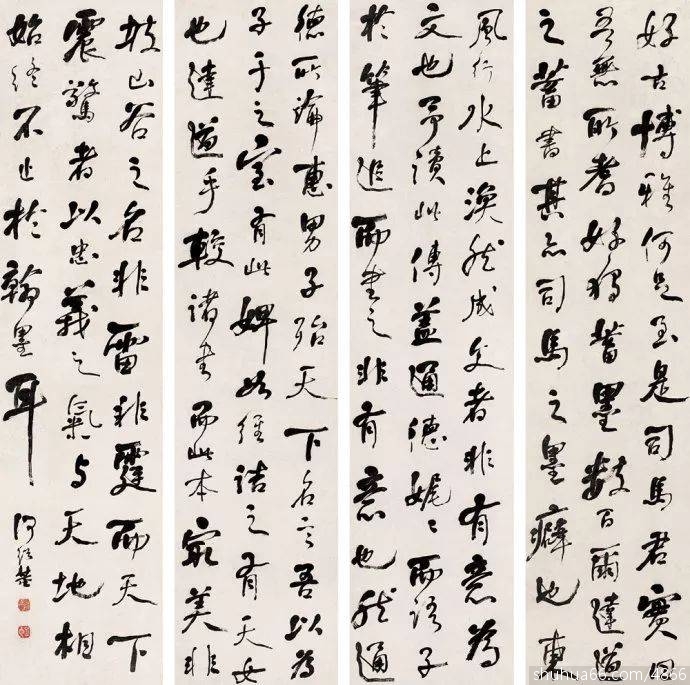 好古博雅何足至是司馬君實曰
吾無所耆好獨蓄墨數百爾達道
之蓄書其亦司馬之墨癖也東
風行水上渙然成文者非有意為
文也予讀此傳蓋通德娓〻而語子
於筆追而書之非有意也然通
德所論惠男子殆天下名言吾以為
子于之室有此婢如維詰之有天女
也達道手較諸書而此本最美非
坡山谷之名非雷非霆而天下
震驚者以忠義之氣与天地相
始終不止於翰墨耳
何紹基
shuhua66.com/4866